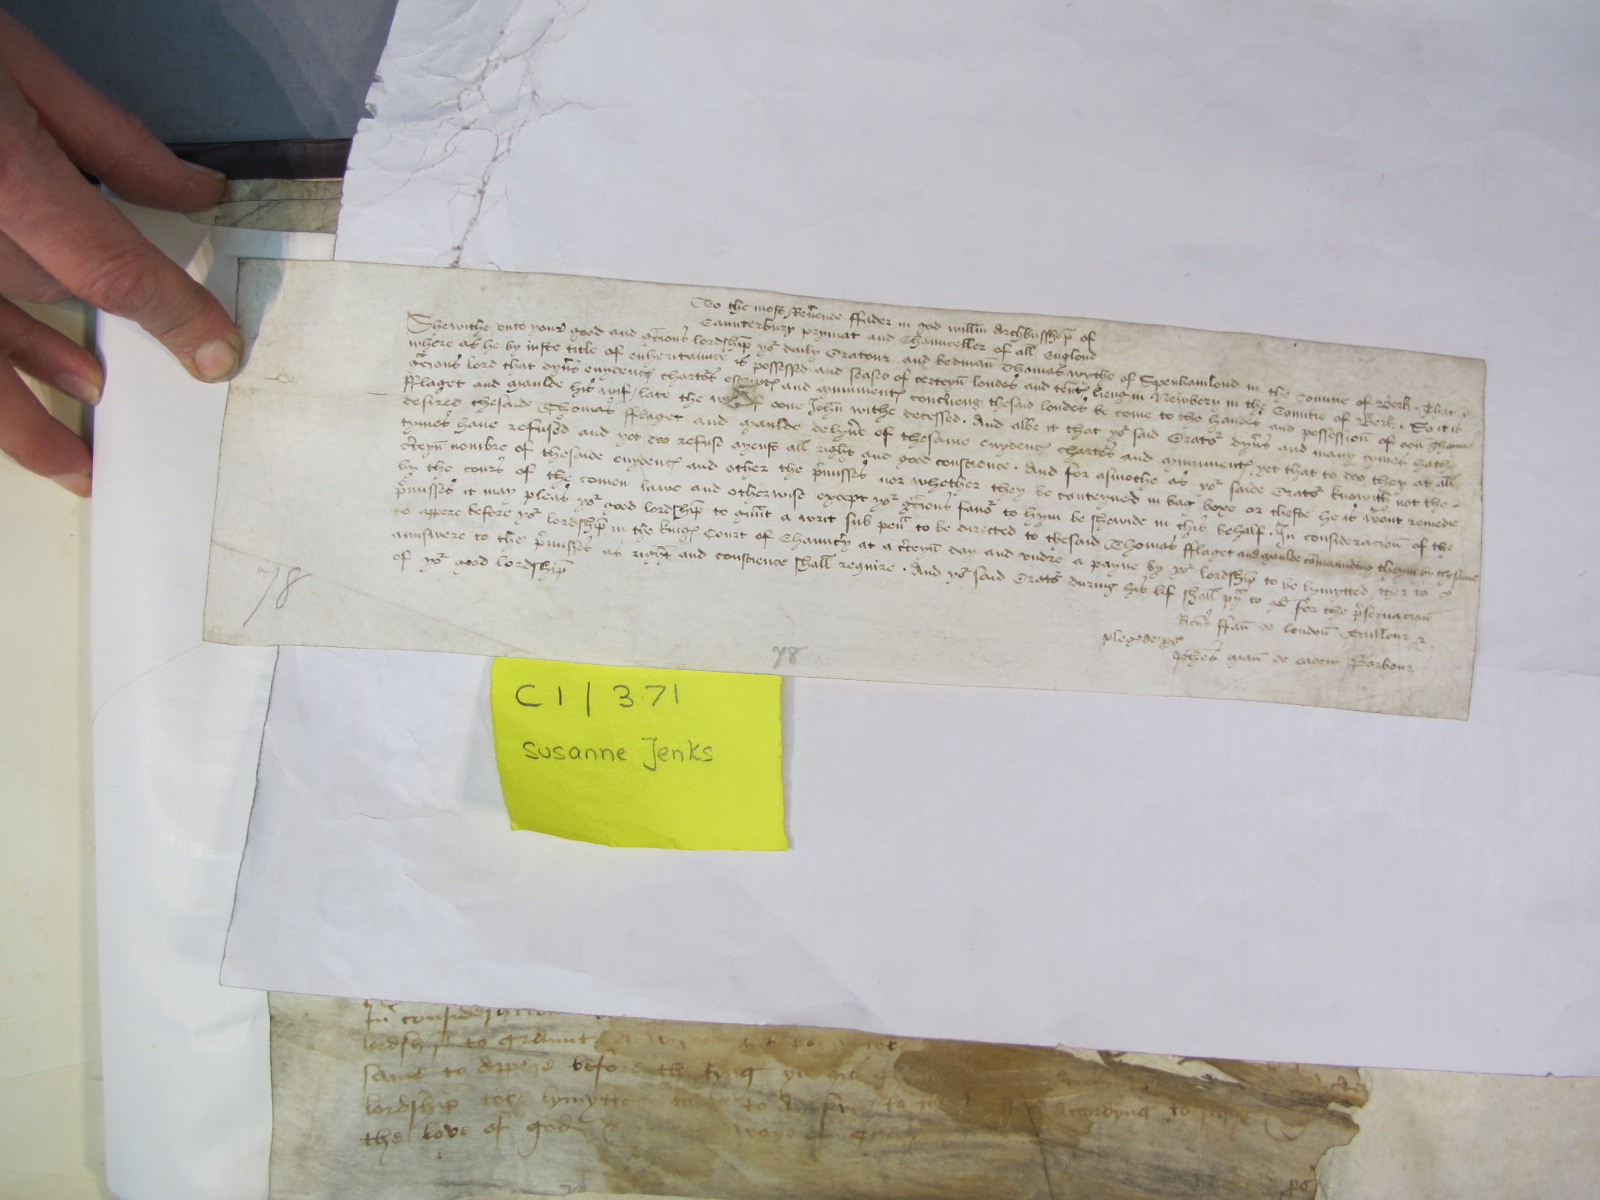 To the most Reuerende ffader in god willm Archbusshep of
Caunterbury prymat and Chaunceller of all Englond
Shewithe unto your good and gcious lordship yor daily Oratour and bedman Thomas wythe of Spenhamlond in the Countie of Berk. That
where as he by iuste title of enheritaunce is possessed and seased of certeyn londes and tents lieng in Newbery in the Countie of Berk. So it is
gcious lord that dyus euydences chartes escriptes and mynumentes concneng thesaid londes be come to the handes and possession of oon Thomas
fflaget and Maulde his wif / late the wyf of oone John withe decessed. And albe it that yor said Orator dyus and many tymes hathe
desired thesaide Thomas fflaget and Maulde delyue of thesame euydences chartes and mynumentes yet that to doo they at all
tymes haue refused and yet doo refuse ayenst all right and good conscience. And for asmoche as yor saide Orator knowith not the
cteyn nombre of thesaide euydences and other the pmisses nor whether they be conteyned in bag boxe or cheste he is wout remede
by the cours of the comen lawe and otherwise except yor gcious fauor to hym be shewide in this behalf. In consideracion of the
pmisses it may pleas yor good lordship to gunt a writ sub pena to be directed to thesaid Thomas fflaget and maulde comaunding theym by thesame
to appere before yor lordship in the kinges Court of Chauncy at a cteyn day and undre a payne by yor lordship to be lymytted ther to
aunswere to the pmisses as right and conscience shall require. And yor said Orator during his lif shall pay to god for the pseruacion
of yor good lordship
plegg de ps
de london Taillour
Johes man de Barbour
78
78
C1 / 371
Susanne Jenks
In consideracion
lordship to graunte a
same to appere before the king
lordship to be lymytted to
accordyng to
the love of god